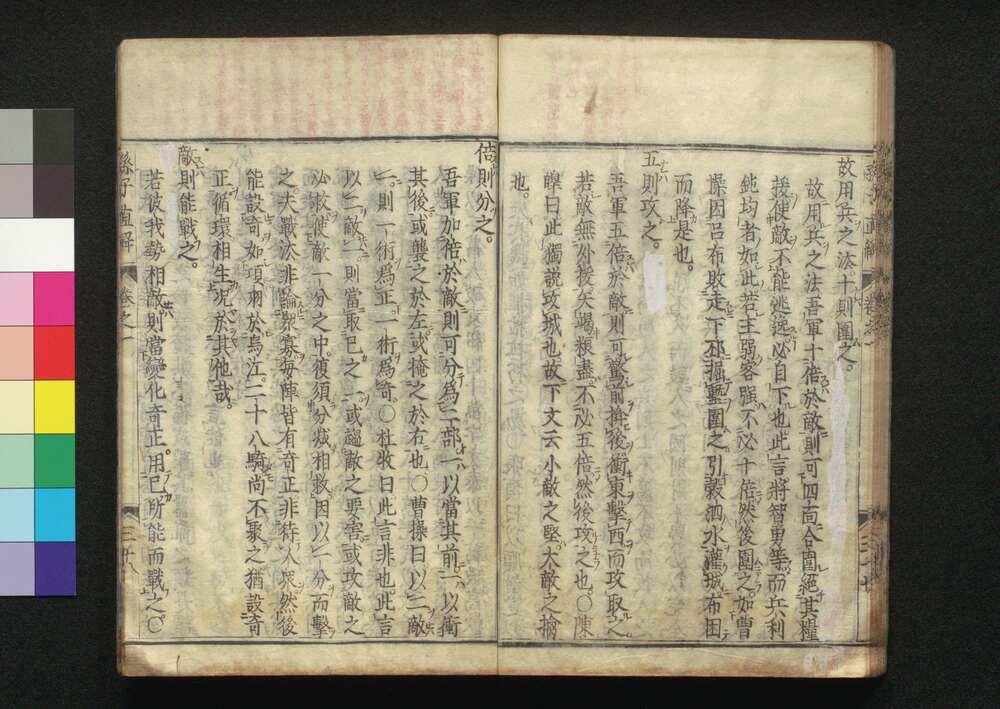 故用兵之法十則圍之。
故用兵之法吾軍十倍於敵則可四面合圍絕其糧
援使敵不能逃逸必自下也此言將智勇等而兵利
鈍均者如此若主弱客强不必十倍然後圍之如曹
操因呂布敗走下邳掘塹圍之引穀泗水灌城布困
而降是也。
五則攻之。
吾軍五倍於敵則可驚前掩後衝東擊西而攻取之
若敵無外援矢竭粮盡不必五倍然後攻之也○陳
皥曰此獨說攻城也故下文云小敵之堅大敵之擒
也。
倍則分之。
吾軍加倍於敵則可分爲二部一以當其前一以衝
其後或襲之於左或掩之於右也○曹操曰以二敵
一則一術爲正一術爲奇○杜牧曰此言非也此言
以二敵一則當取己之一或趨敵之要害或攻敵之
必救使敵一分之中復須分減相救因以一分而擊
之夫戰法非論衆寡每陣皆有奇正非待人衆然後
能設奇如項羽於烏江二十八騎尚不聚之猶設奇
正循環相生况於其他哉。
敵則能戰之。
若彼我勢相敵則當變化奇正用己所能而戰之○
孫子直解 卷之一